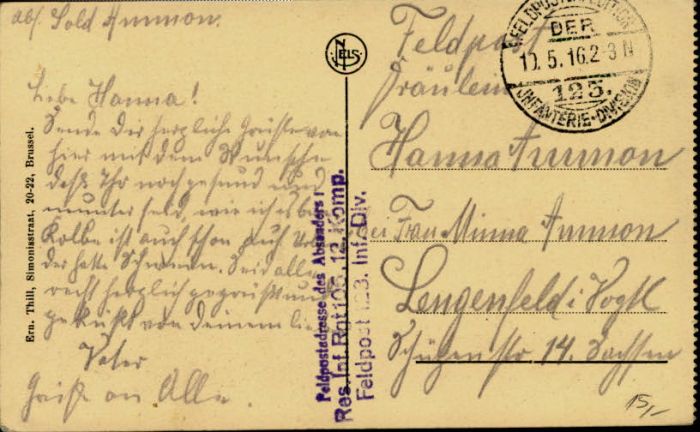 abs. Sold Ammon.
Liebe Hanna!
Sende Dir herzliche Grüße von
hier mit dem Wunsche
daß Ihr noch gesund und
munter seid, wie ich es bin
Kolbe ist auch schon auf Url
der hatte Schwein. Seid alle
recht herzlich gegrüßt und
geküßt von deinem lie
Vater
Gruß an Alle.
Ern. Thill, Simonisstraat, 20-22, Brussel.
NELS
Feldpostadresse des Absenders:
Res. Inf. Rgt. 106, 12. Komp.
Feldpost 123. Inf. Div.
FELDPOSTEXPEDITION
DER
10.5.16.2-3N
125.
INFANTERIE-DIVISION
Feldpost
Fräulein
Hanna Ammon
bei Frau Minna Ammon
Lengenfeld i. Vogtl
Schützenstr 14. Sachsen
15,-